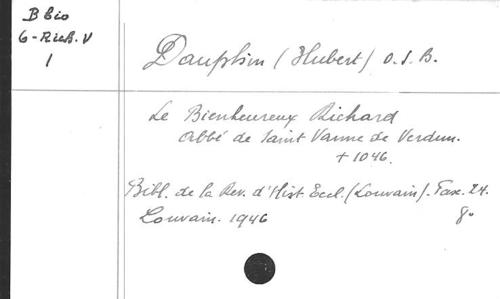 B bio
6-Rich. V
1
Dauphin (Hubert) O.S.B.
Le Bienheureux Richard
Abbé de Saint Vanne de Verdun.
+ 1046.
Bibl. de la Rev. d'Hist. Eccl. (Louvain). Fasc. 24.
Louvain. 1946
8°